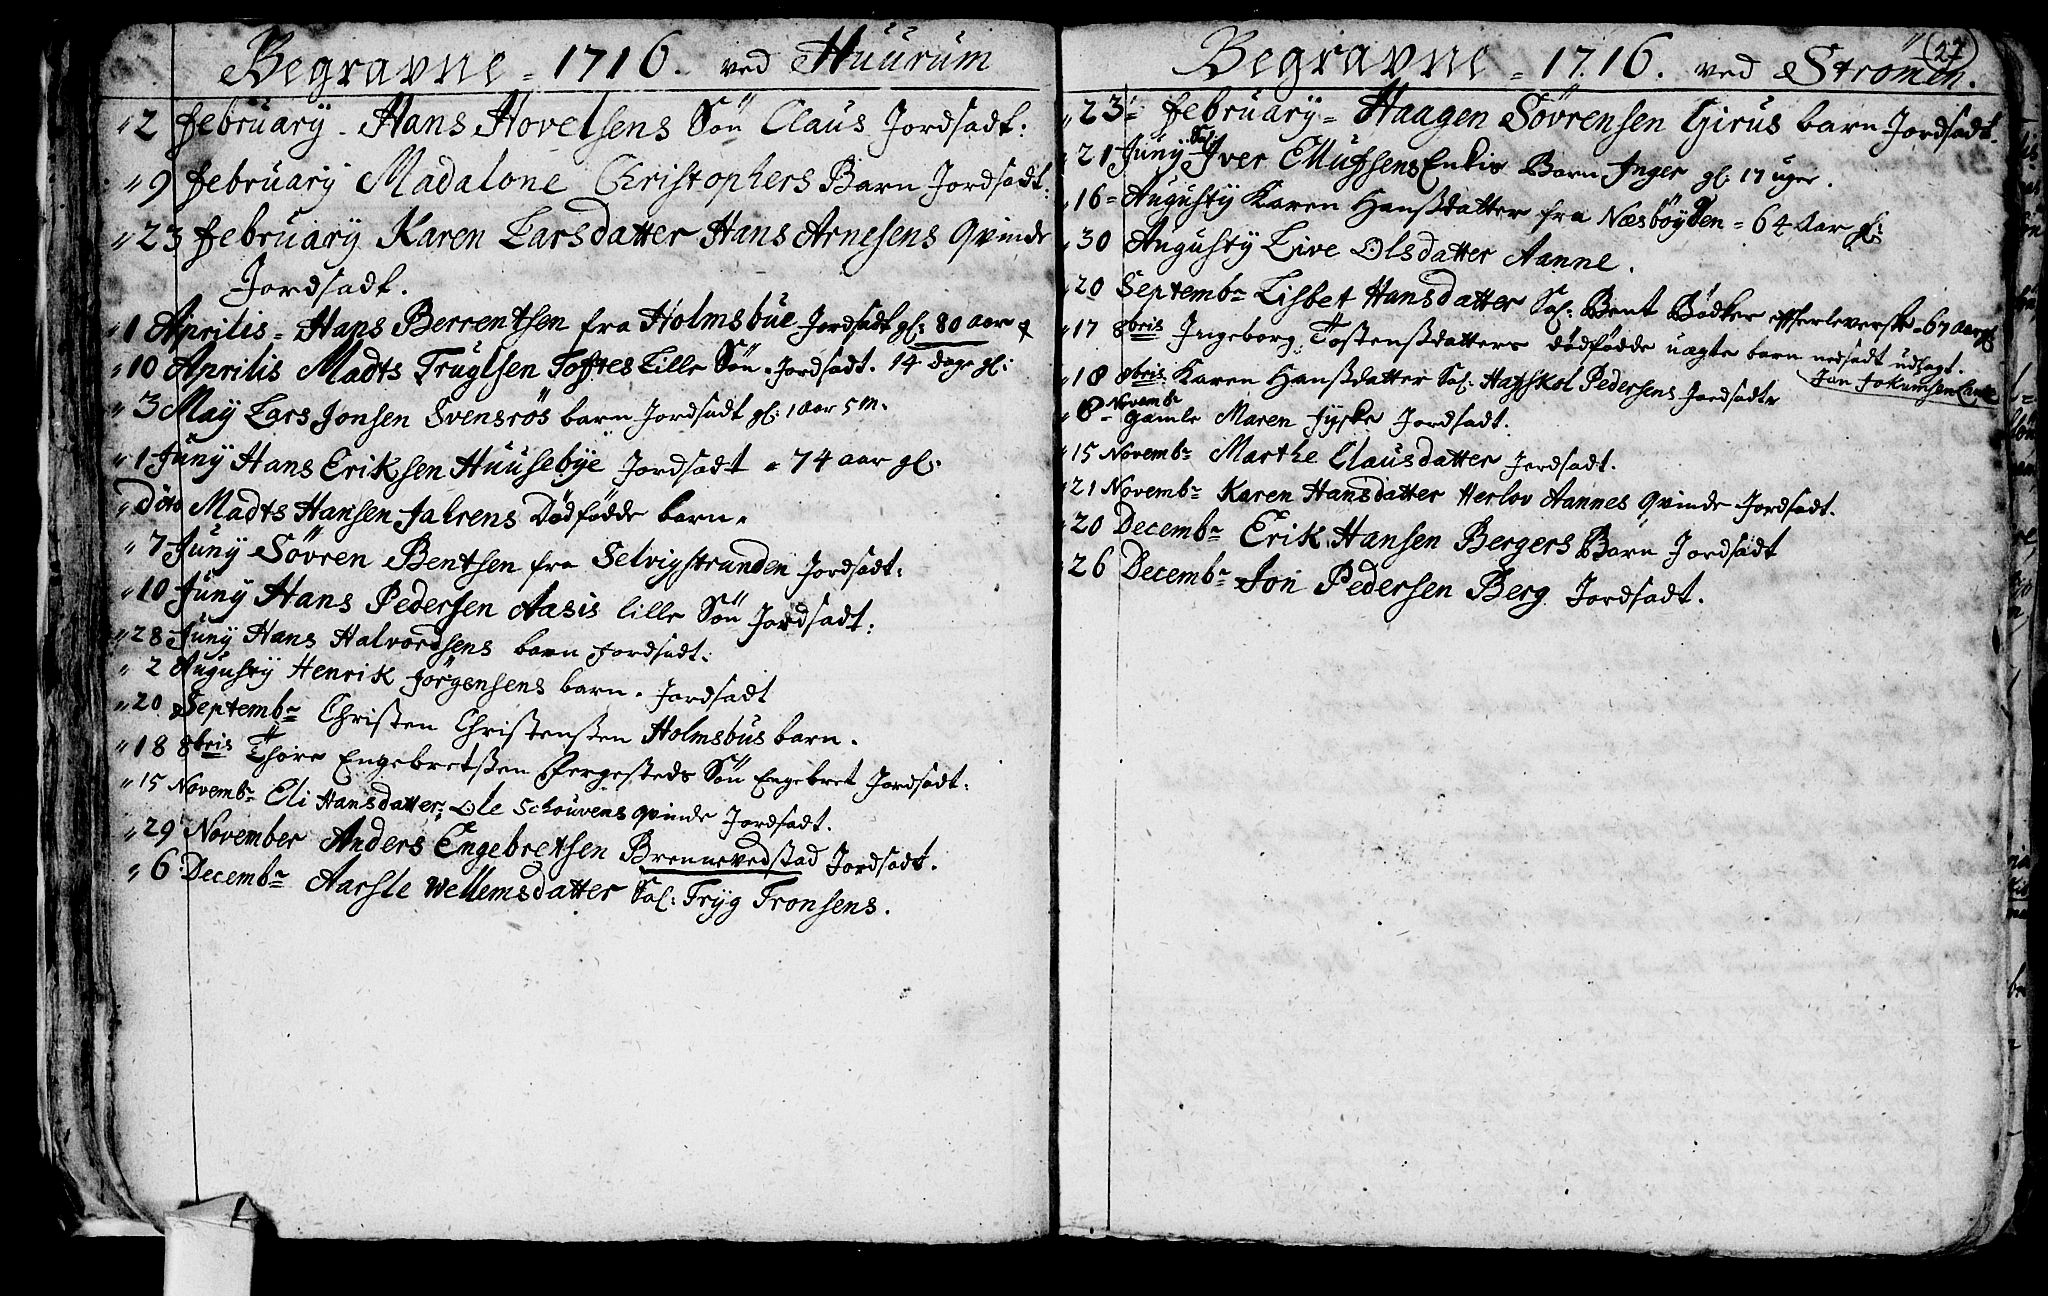 Begravne = 1716. ved Huurum
2 February - Hans Hovelsens Søn Claus Jordsadt:
9 February Madalone Christophers Barn Jordsadt:
23 February Karen Larsdatter Hans Arnesens Qvinde
Jordsadt.
1 Aprilis = Hans Berrentsen fra Holmsbue Jordsadt gl: 80 Aar
10 Aprilis Madts Truglsen Toftes Lille Søn Jordsadt. 14 dage gl:
3 May Lars Jonsen Svensrøs barn Jordsadt gl: 1 Aar 5 m.
1 Juny Hans Eriksen Huusebye Jordsadt = 74 aar gl:
Dito Madts Hansen Jahrens Dødfødde barn.
7 Juny Søvren Bentsen fra Selvigstranden Jordsadt:
10 Juny Hans Pedersen Aasis lille Søn Jordsadt:
28 Juny Hans Halvordsens barn Jordsadt:
2 Augusty Henrik Jørgensens barn. Jordsadt
20 Septembr Christen Christensen Holmsbus barn.
18 8bris Thore Engebretsen Søn Engebret Jordsadt:
15 Novembr Eli Hansdatter: Ole Schouvens qvinde Jordsadt.
29 November Anders Engebretsen Brennevedstad Jordsadt.
6 Decembr Aarsle Wellemsdatter Sal: Tryg Tronsens.
27
Begravne = 1716. ved Strømen.
23 = February = Haagen Søvrensen Girus barn Jordsadt.
21 Juny Sal: Iver Enkis Barn Inger gl: 17 uger.
16 = Augusty Karen Hansdatter fra Næsbøyden = 64 Aar gl:
30 Augusty Live Olsdatter Aanne.
20 Septembr Lisbet Hansdatter Sal: Bent Bødker efterleverske = 67 Aar gl
17 8bris Ingeborg Tostensdatters dødfødde uægte barn nedsadt udlagt.
Jan Jokumsen
18 8bris Karen Hansdatter Sal: Pedersens Jordsadt
8 Novembr gamle Maren Jyske Jordsadt.
15 Novembr Marthe Clausdatter Jordsadt.
21 Novembr Karen Hansdatter Herlov Aannes qvinde Jordsadt.
20 Decembr Erik Hansen Bergers Barn Jordsadt
26 Decembr Jon Pedersen Berg Jordsadt.